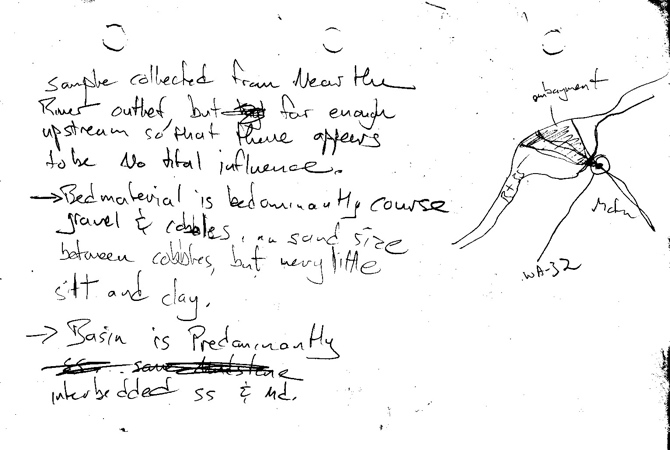 sample collected from Near the
River outlet, but far enough
upstream so that there appears
to be No tital influence.
→ Bedmaterial is bedominantly course
gravel & cobbles, sand size
between cobbles, but very little
silt and clay.
→ Basin is Predominantly
interbedded ss & Md.
embayment
WA-32